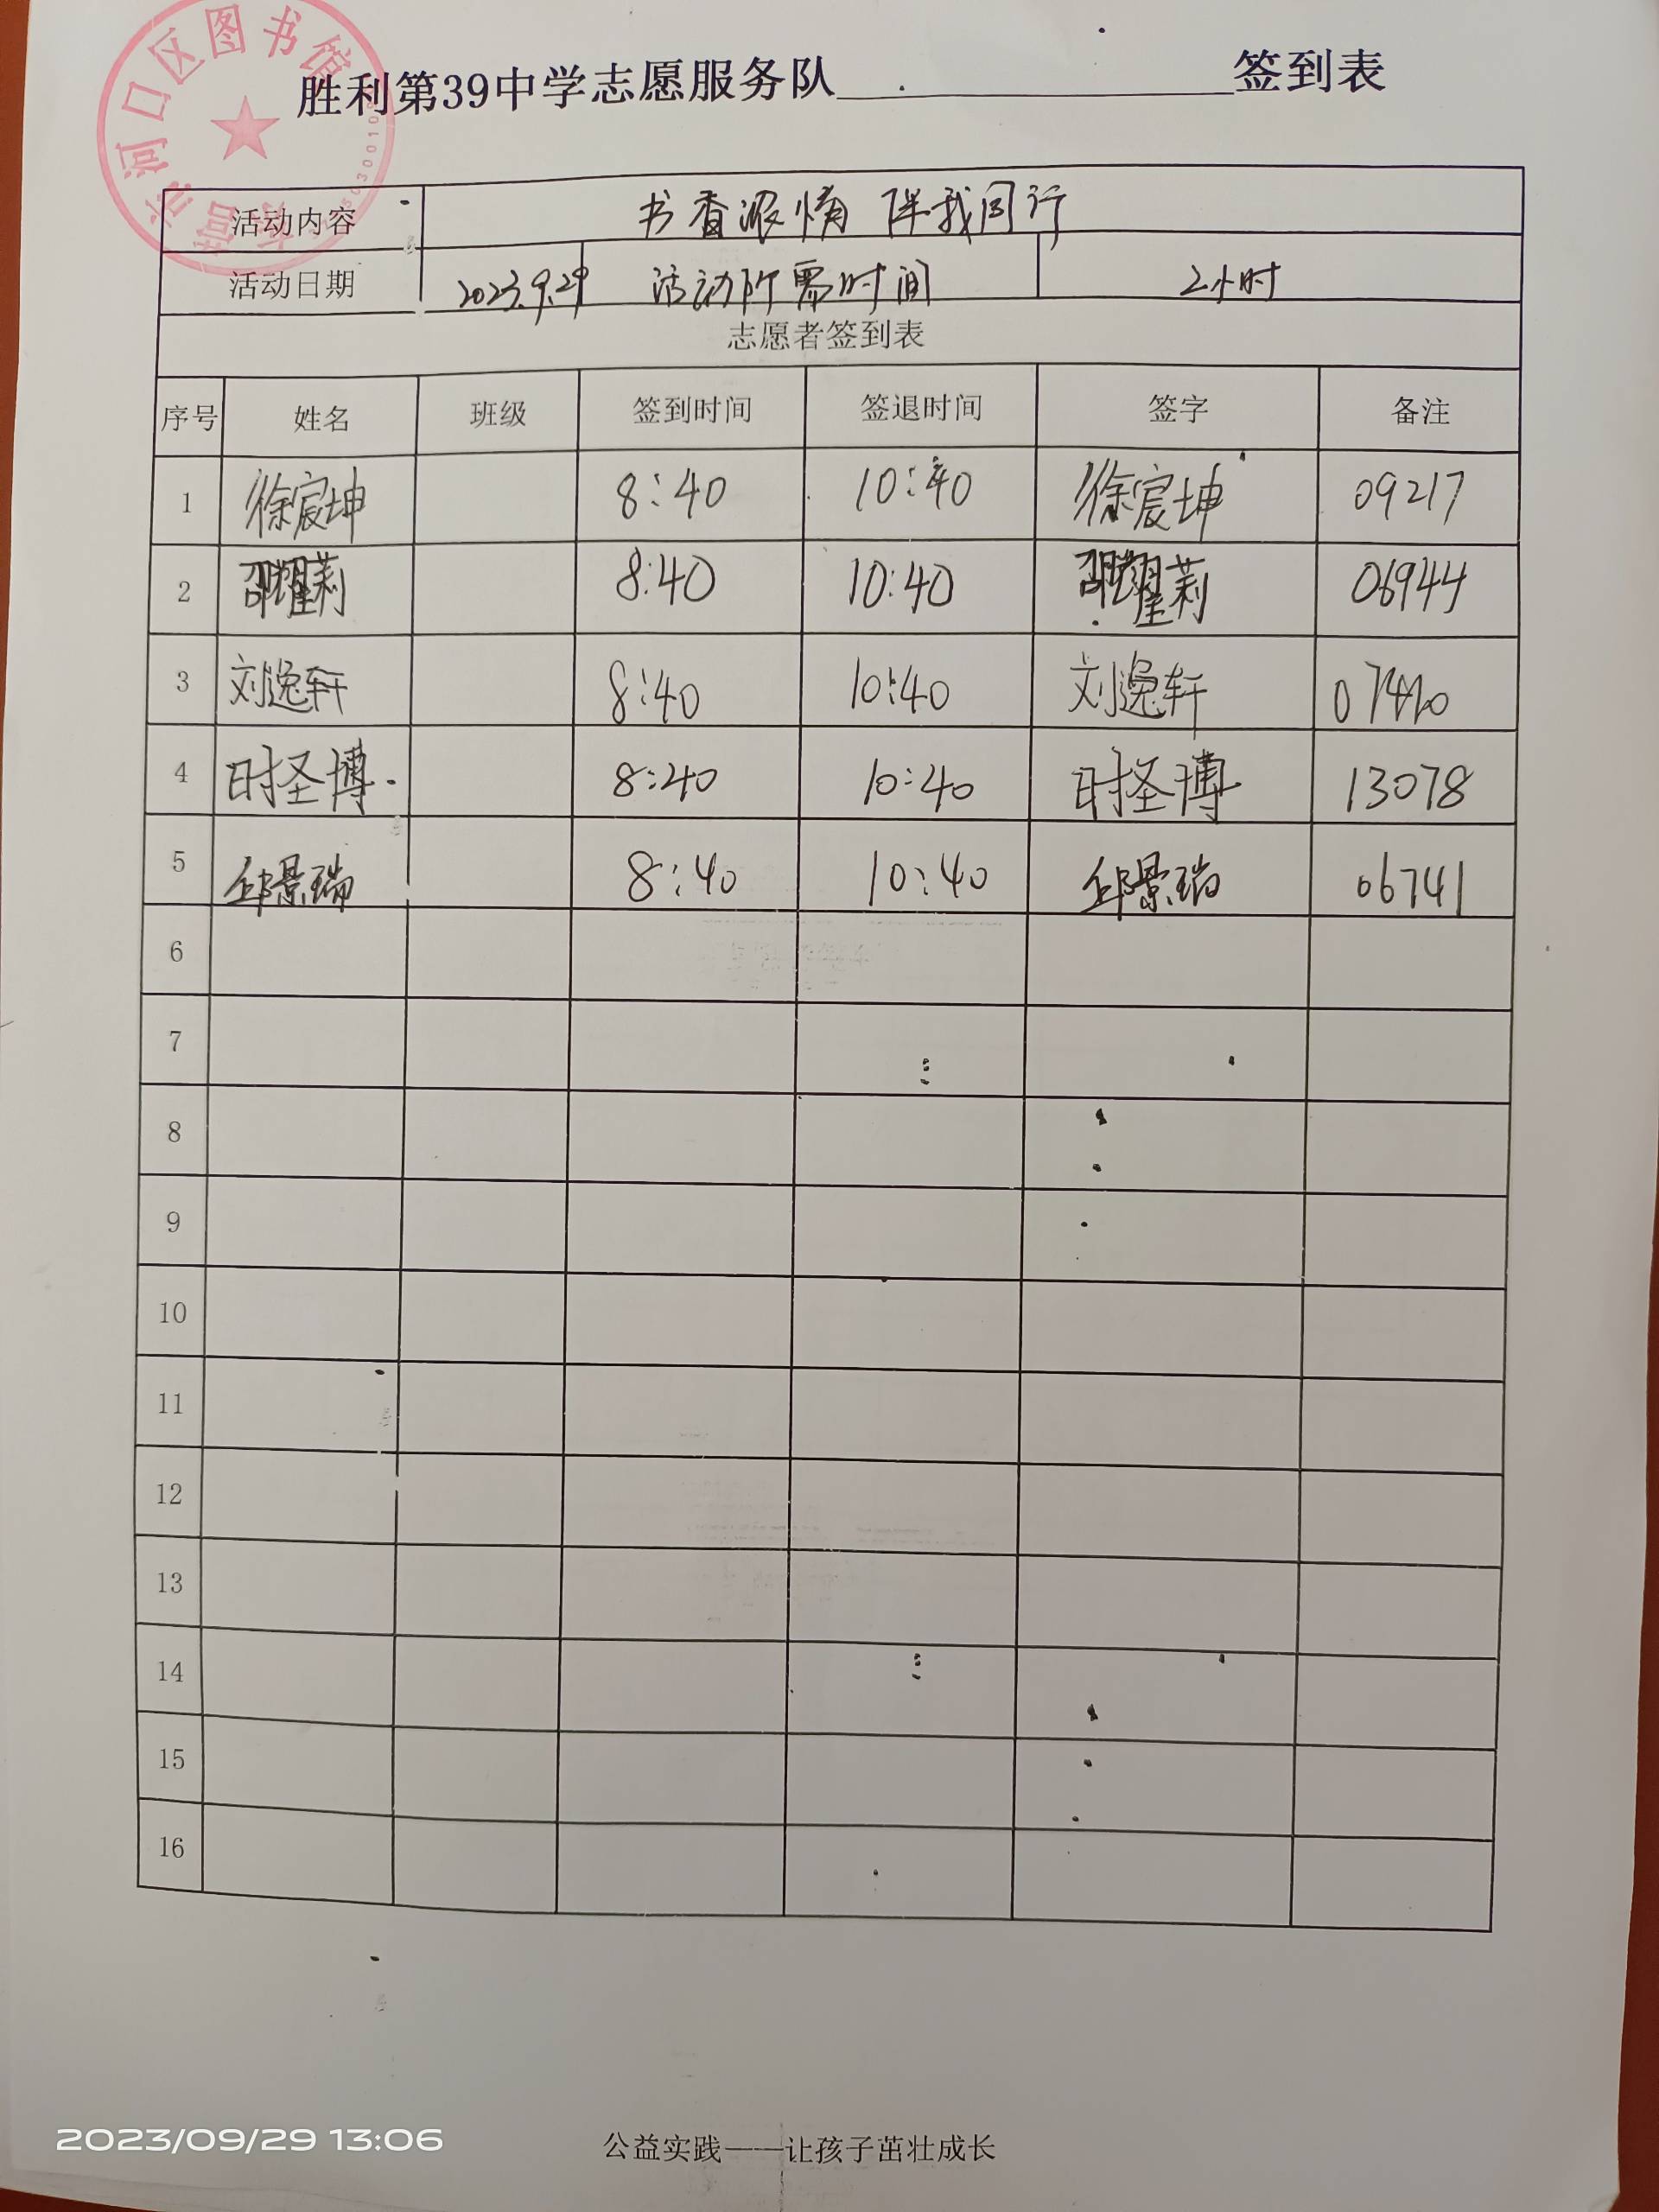 东营市河口区图书馆
胜利第39中学志愿服务队 签到表
活动内容 书香浓情 伴我同行
活动日期 2023.9.29 活动所需时间 2小时
志愿者签到表
序号 姓名 班级 签到时间 签退时间 签字 备注
1 徐宸坤 8:40 10:40 徐宸坤 09217
2 邵耀莉 8:40 10:40 邵耀莉 06944
3 刘逸轩 8:40 10:40 刘逸轩
4 时圣博 8:40 10:40 时圣博 13078
5 邱景瑞 8:40 10:40 邱景瑞 06741
6
7
8
9
10
11
12
13
14
15
16
2023/09/29 13:06
公益实践——让孩子茁壮成长